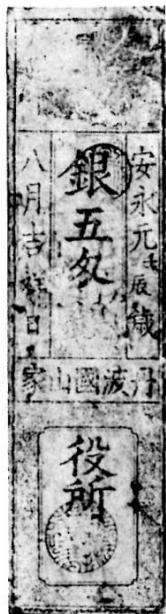 安永元壬辰歳
銀五匁
八月吉祥日
丹波國山家
役所